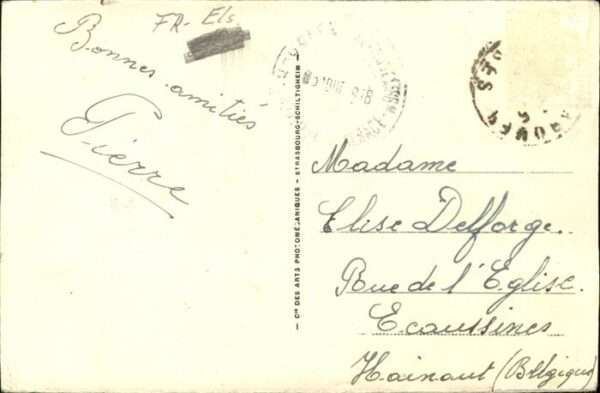 FR- Els
Bonnes amitiés
Pierre
— Cie DES ARTS PHOTOMÉCANIQUES - STRASBOURG-SCHILTIGHEIM —
Madame
Elise Delforge.
Rue de l'Eglise.
Ecaussines
Hainaut (Belgique)